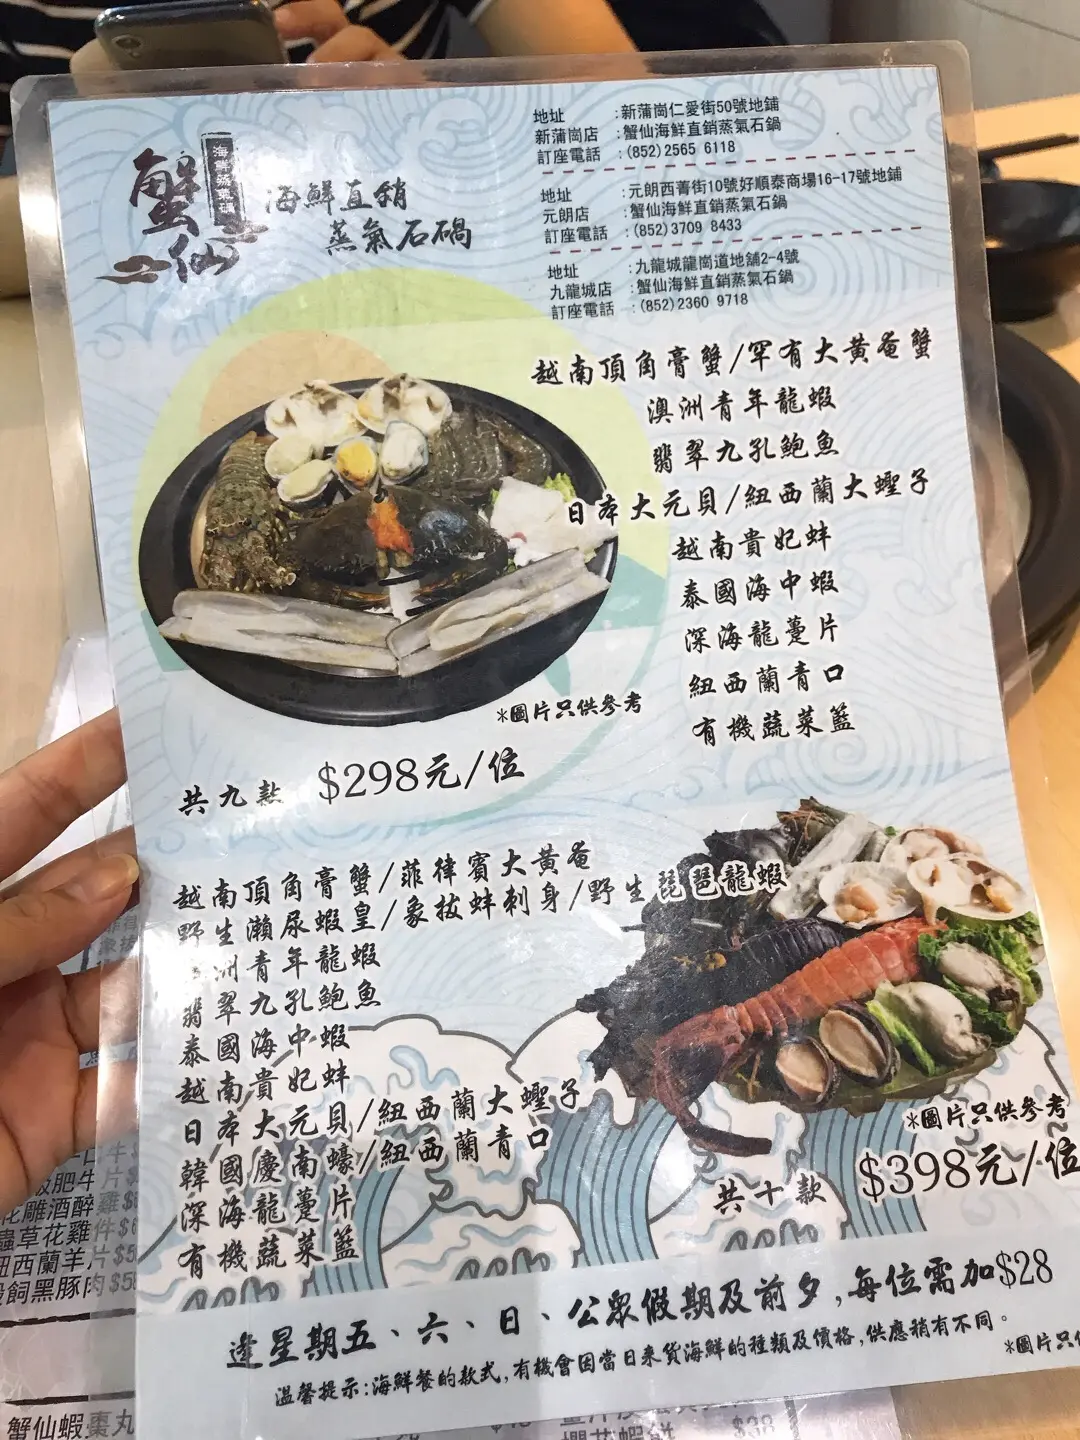 蟹仙
海鮮蒸氣石鍋
海鮮直銷
蒸氣石鍋
地址 :新蒲崗仁愛街50號地鋪
新蒲崗店 :蟹仙海鮮直銷蒸氣石鍋
訂座電話 :(852)2565 6118
地址 :元朗西菁街10號好順泰商場16-17號地鋪
元朗店 :蟹仙海鮮直銷蒸氣石鍋
訂座電話 :(852)3709 8433
地址 :九龍城龍崗道地舖2-4號
九龍城店 :蟹仙海鮮直銷蒸氣石鍋
訂座電話 :(852)2360 9718
越南頂角膏蟹/罕有大黃奄蟹
澳洲青年龍蝦
翡翠九孔鮑魚
日本大元貝/紐西蘭大蟶子
越南貴妃蚌
泰國海中蝦
深海龍躉片
紐西蘭青口
有機蔬菜籃
*圖片只供參考
共九款 $298元/位
越南頂角膏蟹/菲律賓大黃奄
野生瀨尿蝦皇/象拔蚌刺身/野生琵琶龍蝦
洲青年龍蝦
翡翠九孔鮑魚
泰國海中蝦
越南貴妃蚌
日本大元貝/紐西蘭大蟶子
韓國慶南蠔/紐西蘭青口
深海龍躉片
有機蔬菜籃
*圖片只供參考
共十款 $398元/位
逢星期五、六、日、公眾假期及前夕,每位需加$28
溫馨提示:海鮮餐的款式,有機會因當日來貨海鮮的種類及價格,供應稍有不同。
*圖片只供
肥牛片$
花雕酒醉雞$
蟲草花雞件$6
紐西蘭羊片$5
飼黑豚肉$5
蟹仙蝦棗丸
$38